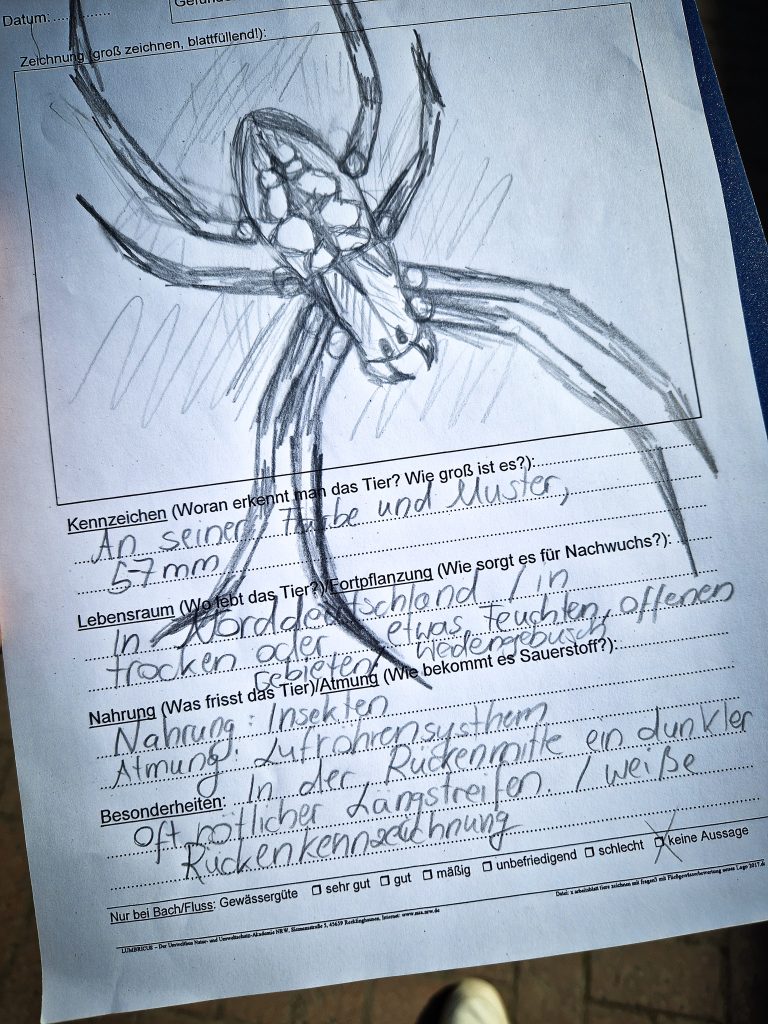 Datum:..............
Zeichnung (groß zeichnen, blattfüllend!):
Kennzeichen (Woran erkennt man das Tier? Wie groß ist es?):
An seiner Farbe und Muster,
57mm
Lebensraum (Wo lebt das Tier?)/Fortpflanzung (Wie sorgt es für Nachwuchs?):
In Norddeutschland / in
trocken oder etwas feuchten, offenen
gebieten/ Weidengebüsch
Nahrung (Was frisst das Tier)/Atmung (Wie bekommt es Sauerstoff?):
Nahrung: Insekten
Atmung: Lufrohrensysthem
Besonderheiten: In der Rückenmitte ein dunkler
oft rötlicher Längstreifen. / weiße
Rückenkennzeichnung
Nur bei Bach/Fluss: Gewässergüte ❒ sehr gut ❒ gut ❒ mäßig ❒ unbefriedigend ❒ schlecht ❒ keine Aussage
LUMBRICUS – Der Umweltbus Natur- und Umweltschutz-Akademie NRW, Siemensstraße 5, 45659 Recklinghausen, Internet: www.nua.nrw.de
Datei: z arbeitsblatt tiere zeichnen mit fragen3 mit Fließgewässerbewertung neues Logo 2017.d